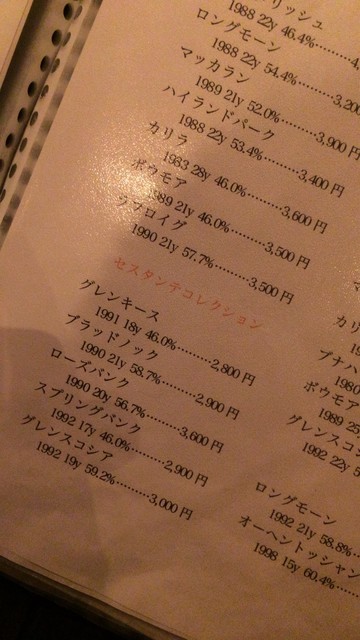 リッシュ
1988 22y 46.4%
ロングモーン
1988 22y 54.4%………3,200
マッカラン
1989 21y 52.0%………3,900 円
ハイランドパーク
1988 22y 53.4%………3,400 円
カリラ
1983 28y 46.0%………3,600 円
ボウモア
1989 21y 46.0%………3,500 円
ラフロイグ
1990 21y 57.7%………3,500 円
セスタンテコレクション
グレンキース
1991 18y 46.0%………2,800 円
ブラッドノック
1990 21y 58.7%………2,900 円
ローズバンク
1990 20y 56.7%………3,600 円
スプリングバンク
1992 17y 46.0%………2,900 円
グレンスコシア
1992 19y 59.2%………3,000 円
カリ
ブナハ
1980
ボウモア
1989 25
グレンスコシ
1992 22y 5
ロングモーン
1992 21y 58.8%
オーヘントッシャン
1998 15y 60.4%